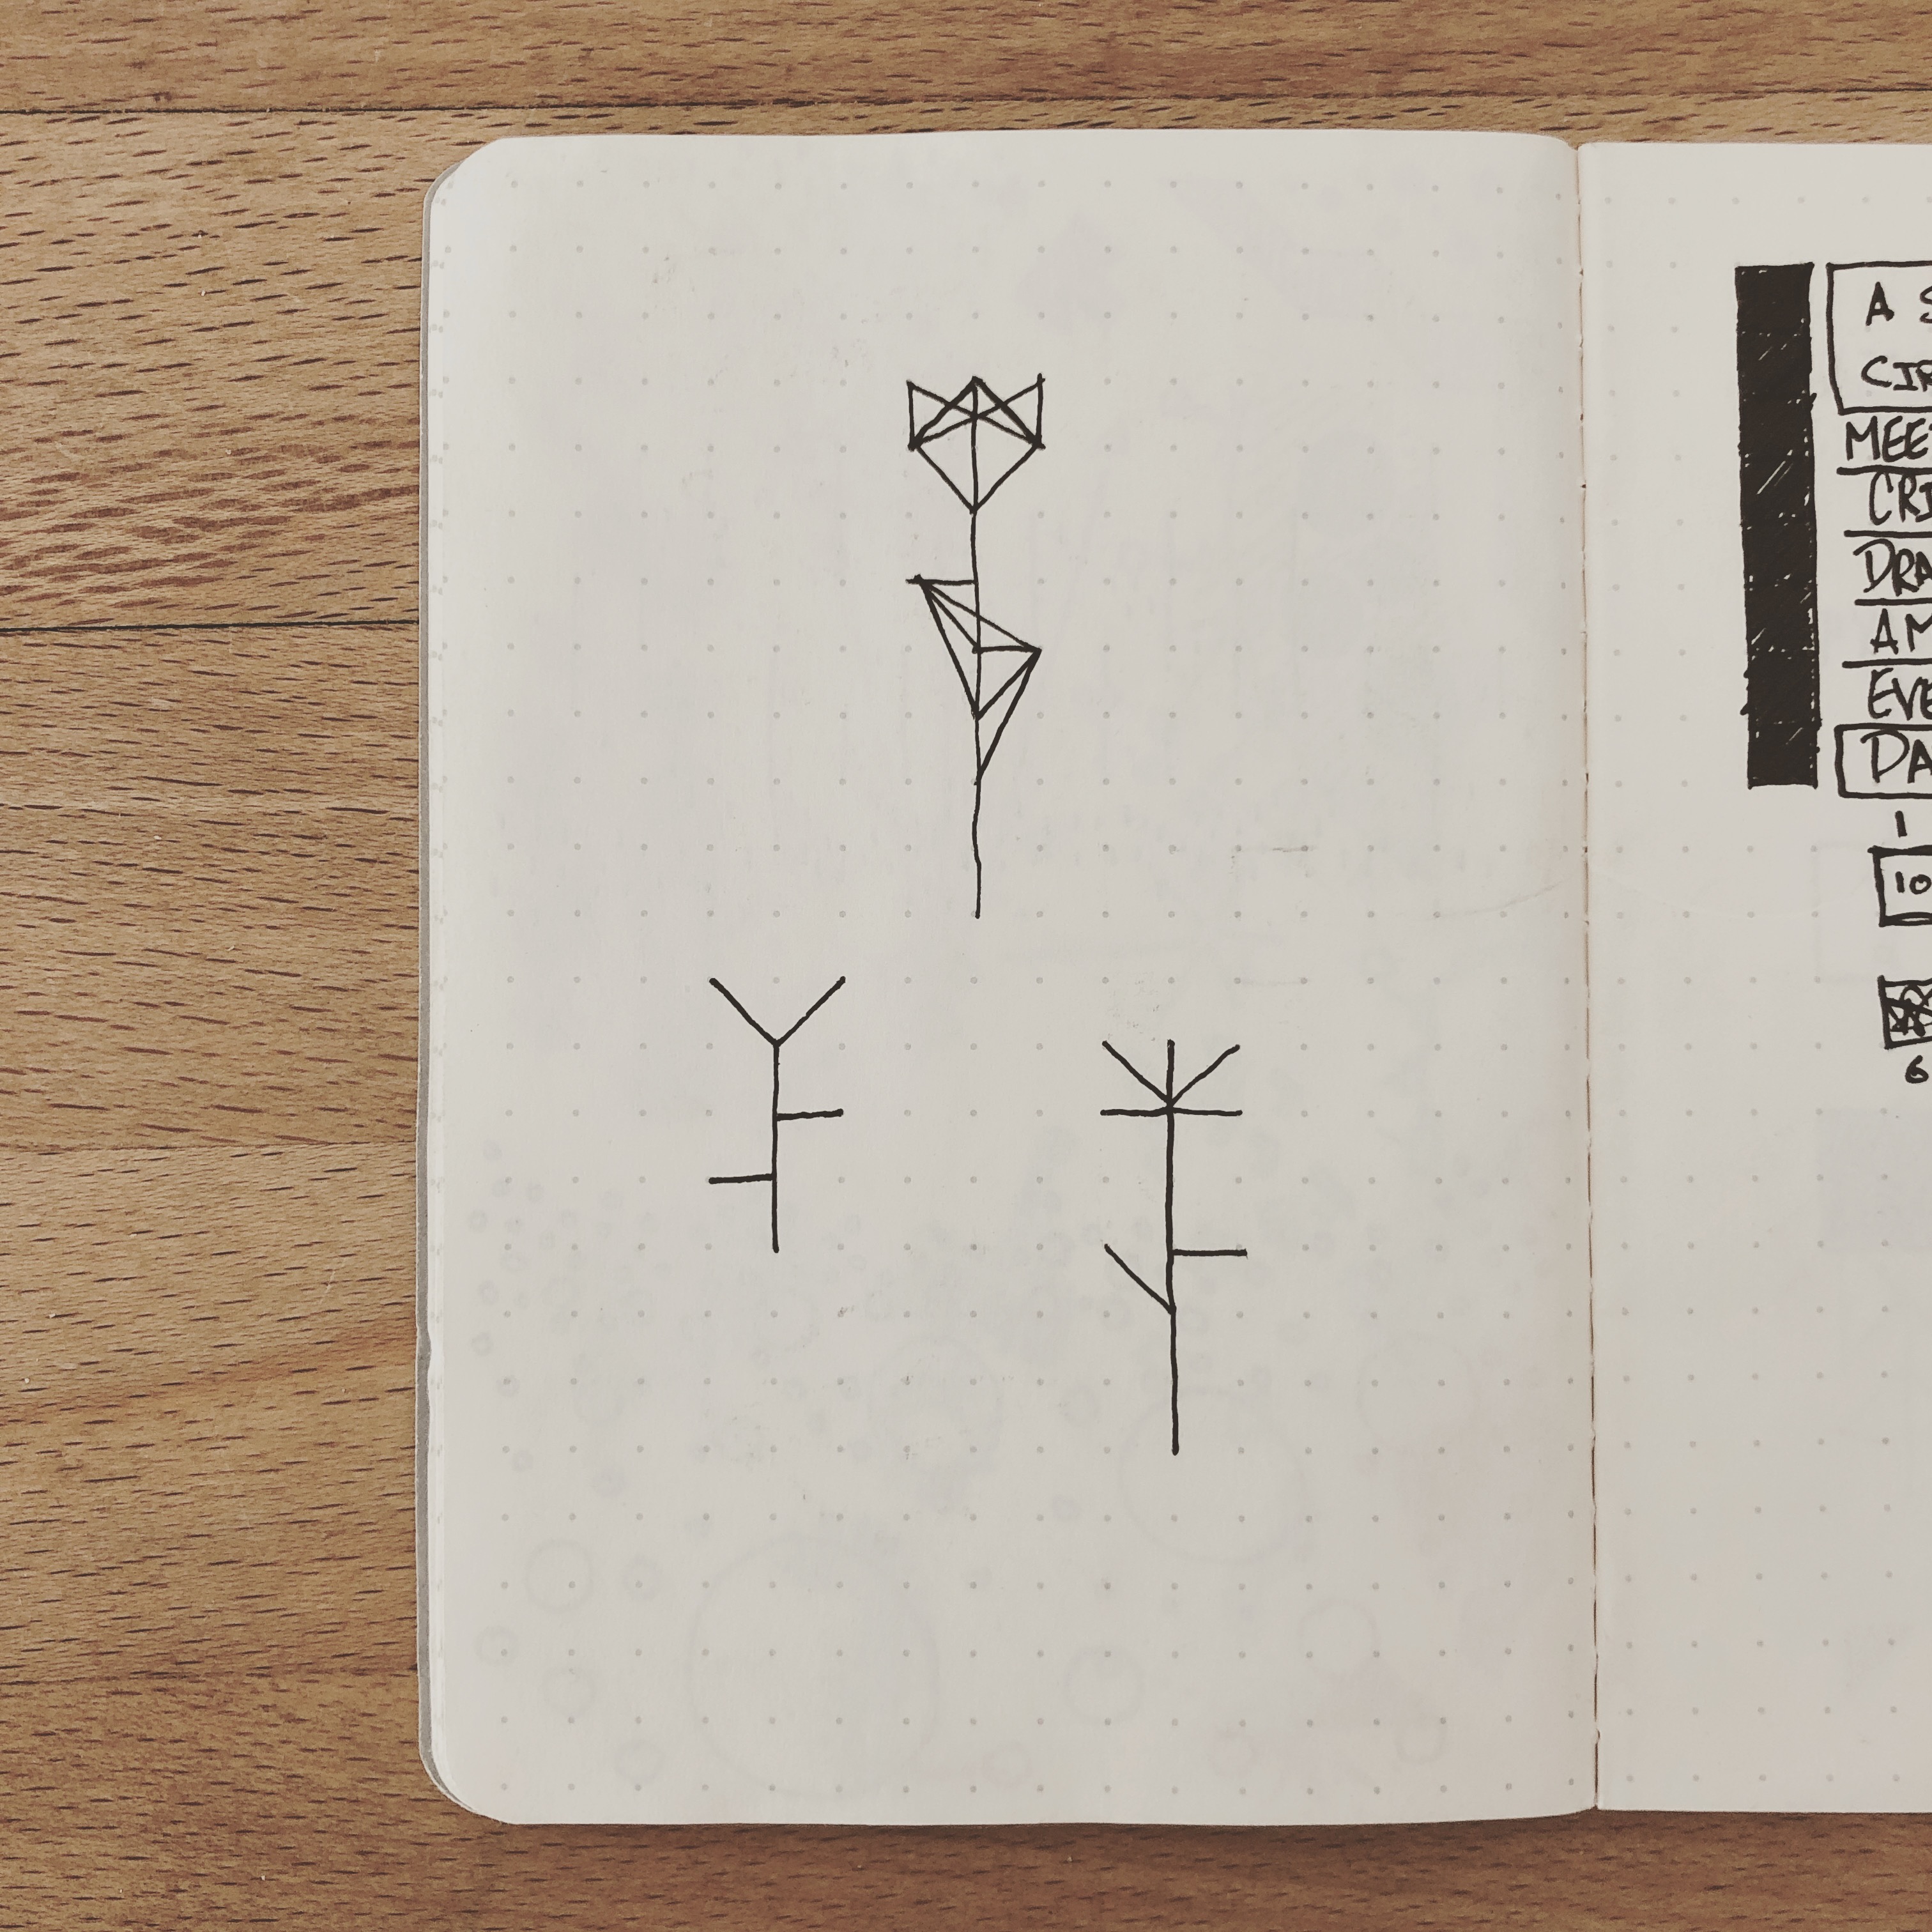 A S
CIR
MEE
CRI
DRA
AM
EVE
DA
1
10
6